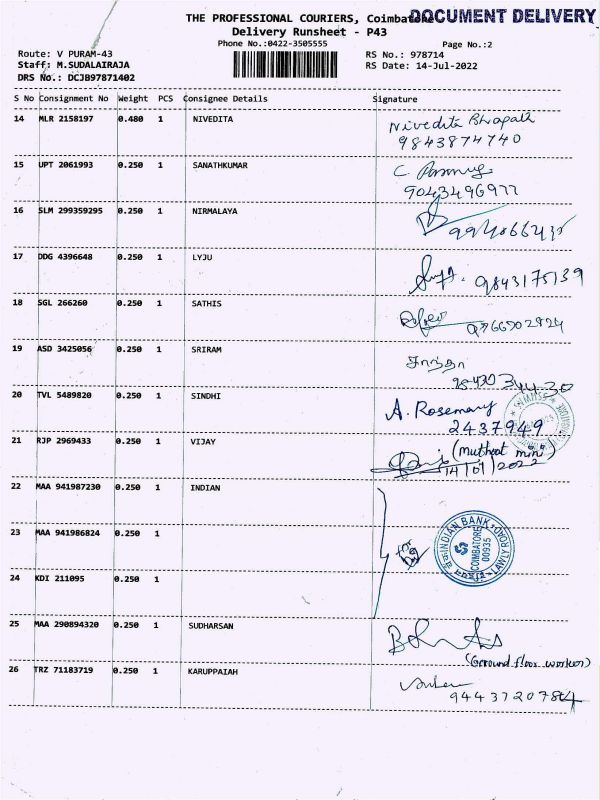 THE PROFESSIONAL COURIERS, Coimbatore
DOCUMENT DELIVERY
Delivery Runsheet - P43
Phone No.:0422-3505555
Page No.:2
Route: V PURAM-43
RS No.: 978714
Staff: M.SUDALAIRAJA
RS Date: 14-Jul-2022
DRS No.: DCJB97871402
S No Consignment No Weight PCS Consignee Details Signature
14 MLR 2158197 0.480 1 NIVEDITA Nivedita
9843874740
15 UPT 2061993 0.250 1 SANATHKUMAR
9043496977
16 SLM 299359295 0.250 1 NIRMALAYA
17 DDG 4396648 0.250 1 LYJU 9843175139
18 SGL 266260 0.250 1 SATHIS
19 ASD 3425056 0.250 1 SRIRAM
20 TVL 5489820 0.250 1 SINDHI A. Rosemary
2437949
21 RJP 2969433 0.250 1 VIJAY (muthoot mini)
14/07/2022
22 MAA 941987230 0.250 1 INDIAN
23 MAA 941986824 0.250 1
INDIAN BANK
COIMBATORE
00935
LAWLEY ROAD
24 KDI 211095 0.250 1
25 MAA 290894320 0.250 1 SUDHARSAN
(Ground floor worker)
26 TRZ 71183719 0.250 1 KARUPPAIAH
9443720784